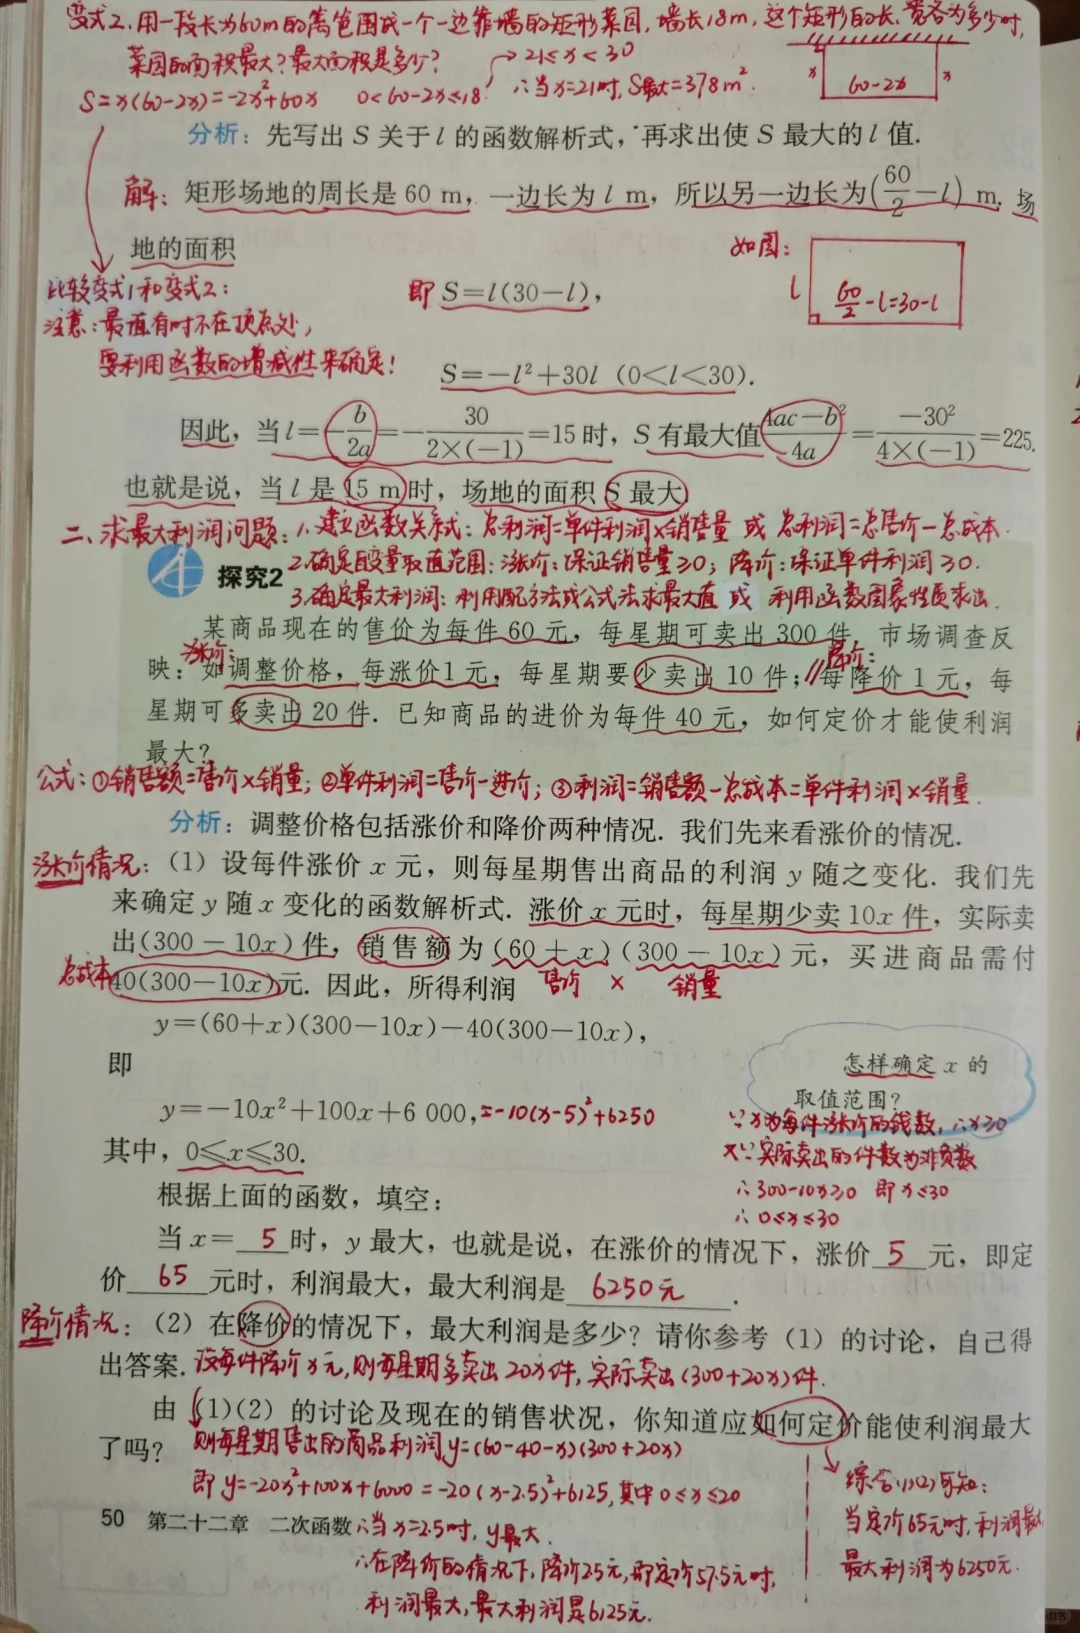 变式2.用一段长为60m的篱笆围成一个一边靠墙的矩形菜园,墙长18m,这个矩形的长、宽各为多少时,
菜园的面积最大?最大面积是多少?
→21≤x<30
S=x(60-2x)=-2x²+60x 0<60-2x≤18 ∴当x=21时,S最大=378m².
x 60-2x x
分析:先写出 S 关于 l 的函数解析式,再求出使 S 最大的 l 值.
解:矩形场地的周长是 60 m,一边长为 l m,所以另一边长为(60/2-l) m.场
地的面积
如图:
l 60/2-l=30-l
比较变式1和变式2:
即 S=l(30-l),
注意:最值有时不在顶点处,
要利用函数的增减性来确定!
S=-l²+30l (0<l<30).
因此,当 l=-b/2a=-30/(2×(-1))=15 时,S 有最大值(4ac-b²)/4a=-30²/(4×(-1))=225.
也就是说,当 l 是 15 m 时,场地的面积 S 最大
二、求最大利润问题:1.建立函数关系式:总利润=单件利润×销售量 或 总利润=总售价-总成本.
2.确定自变量取值范围:涨价:保证销售量≥0;降价:保证单件利润≥0.
探究2
3.确定最大利润:利用配方法或公式法求最大值 或 利用函数图象性质求出.
某商品现在的售价为每件 60 元,每星期可卖出 300 件,市场调查反
涨价: 降价:
映:如调整价格,每涨价1 元,每星期要少卖出 10 件;//每降价 1 元,每
星期可多卖出 20 件.已知商品的进价为每件 40 元,如何定价才能使利润
最大?
公式:①销售额=售价×销量;②单件利润=售价-进价;③利润=销售额-总成本=单件利润×销量.
分析:调整价格包括涨价和降价两种情况.我们先来看涨价的情况.
涨价情况:(1)设每件涨价 x 元,则每星期售出商品的利润 y 随之变化.我们先
来确定 y 随 x 变化的函数解析式.涨价 x 元时,每星期少卖 10x 件,实际卖
出(300-10x)件,销售额为(60+x)(300-10x)元,买进商品需付
总成本 40(300-10x)元.因此,所得利润 售价 × 销量
y=(60+x)(300-10x)-40(300-10x),
即
怎样确定 x 的
取值范围?
y=-10x²+100x+6 000,=-10(x-5)²+6250
∵x为每件涨价的钱数,∴x≥0
其中,0≤x≤30.
又∵实际卖出的件数为非负数
∴300-10x≥0 即x≤30
∴0≤x≤30
根据上面的函数,填空:
当 x=5时,y 最大,也就是说,在涨价的情况下,涨价5元,即定
价65元时,利润最大,最大利润是6250元.
降价情况:(2)在降价的情况下,最大利润是多少?请你参考(1)的讨论,自己得
出答案.设每件降价x元,则每星期多卖出20x件,实际卖出(300+20x)件.
由(1)(2)的讨论及现在的销售状况,你知道应如何定价能使利润最大
了吗?
则每星期售出的商品利润y=(60-40-x)(300+20x)
即 y=-20x²+100x+6000=-20(x-2.5)²+6125,其中0≤x≤20
50 第二十二章 二次函数
∴当x=2.5时,y最大.
∴在降价的情况下,降价2.5元,即定价57.5元时,
利润最大,最大利润是6125元.
综合(1)(2)可知:
当定价65元时,利润最大
最大利润为6250元.